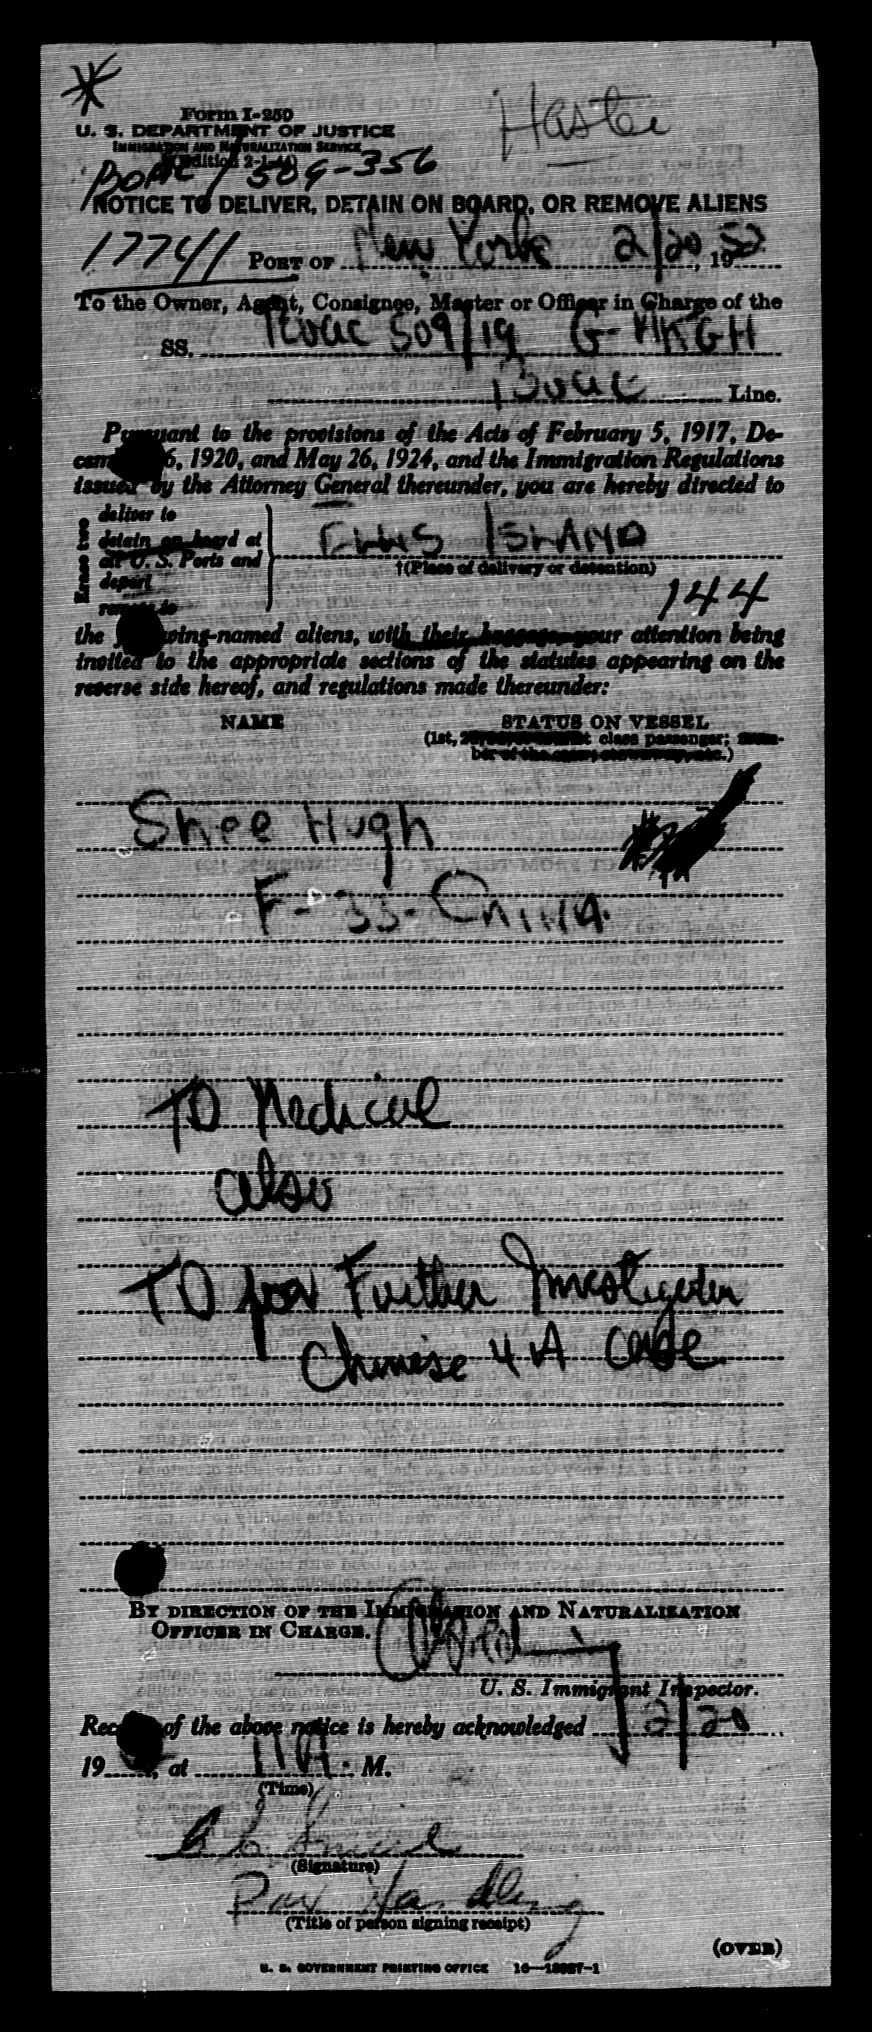 Form I-250
U. S. DEPARTMENT OF JUSTICE
IMMIGRATION AND NATURALIZATION SERVICE
(Edition 2-1-44)
BOAC / 509-356
NOTICE TO DELIVER, DETAIN ON BOARD, OR REMOVE ALIENS
17741 PORT OF New York 2/20, 1952
To the Owner, Agent, Consignee, Master or Officer in Charge of the
SS. BOAC 509/19 G-AKGH
BOAC Line.
Pursuant to the provisions of the Acts of February 5, 1917, De-
cember 26, 1920, and May 26, 1924, and the Immigration Regulations
issued by the Attorney General thereunder, you are hereby directed to
Erase two
deliver to
detain on board at
all U. S. Ports and
depart
remove to
ELLIS ISLAND
†(Place of delivery or detention)
144
the following-named aliens, with their baggage, your attention being
invited to the appropriate sections of the statutes appearing on the
reverse side hereof, and regulations made thereunder:
NAME STATUS ON VESSEL
(1st, class passenger; mem-
ber of the etc.)
Shee Hugh
F-33-China.
TO Medical
also
TO for Further Investigation
Chinese 4A case
BY DIRECTION OF THE IMMIGRATION AND NATURALIZATION
OFFICER IN CHARGE.
U. S. Immigrant Inspector.
Receipt of the above notice is hereby acknowledged 2/20
19 , at 11A. M.
(Time)
(Signature)
Pax Handling
(Title of person signing receipt)
(OVER)
U. S. GOVERNMENT PRINTING OFFICE